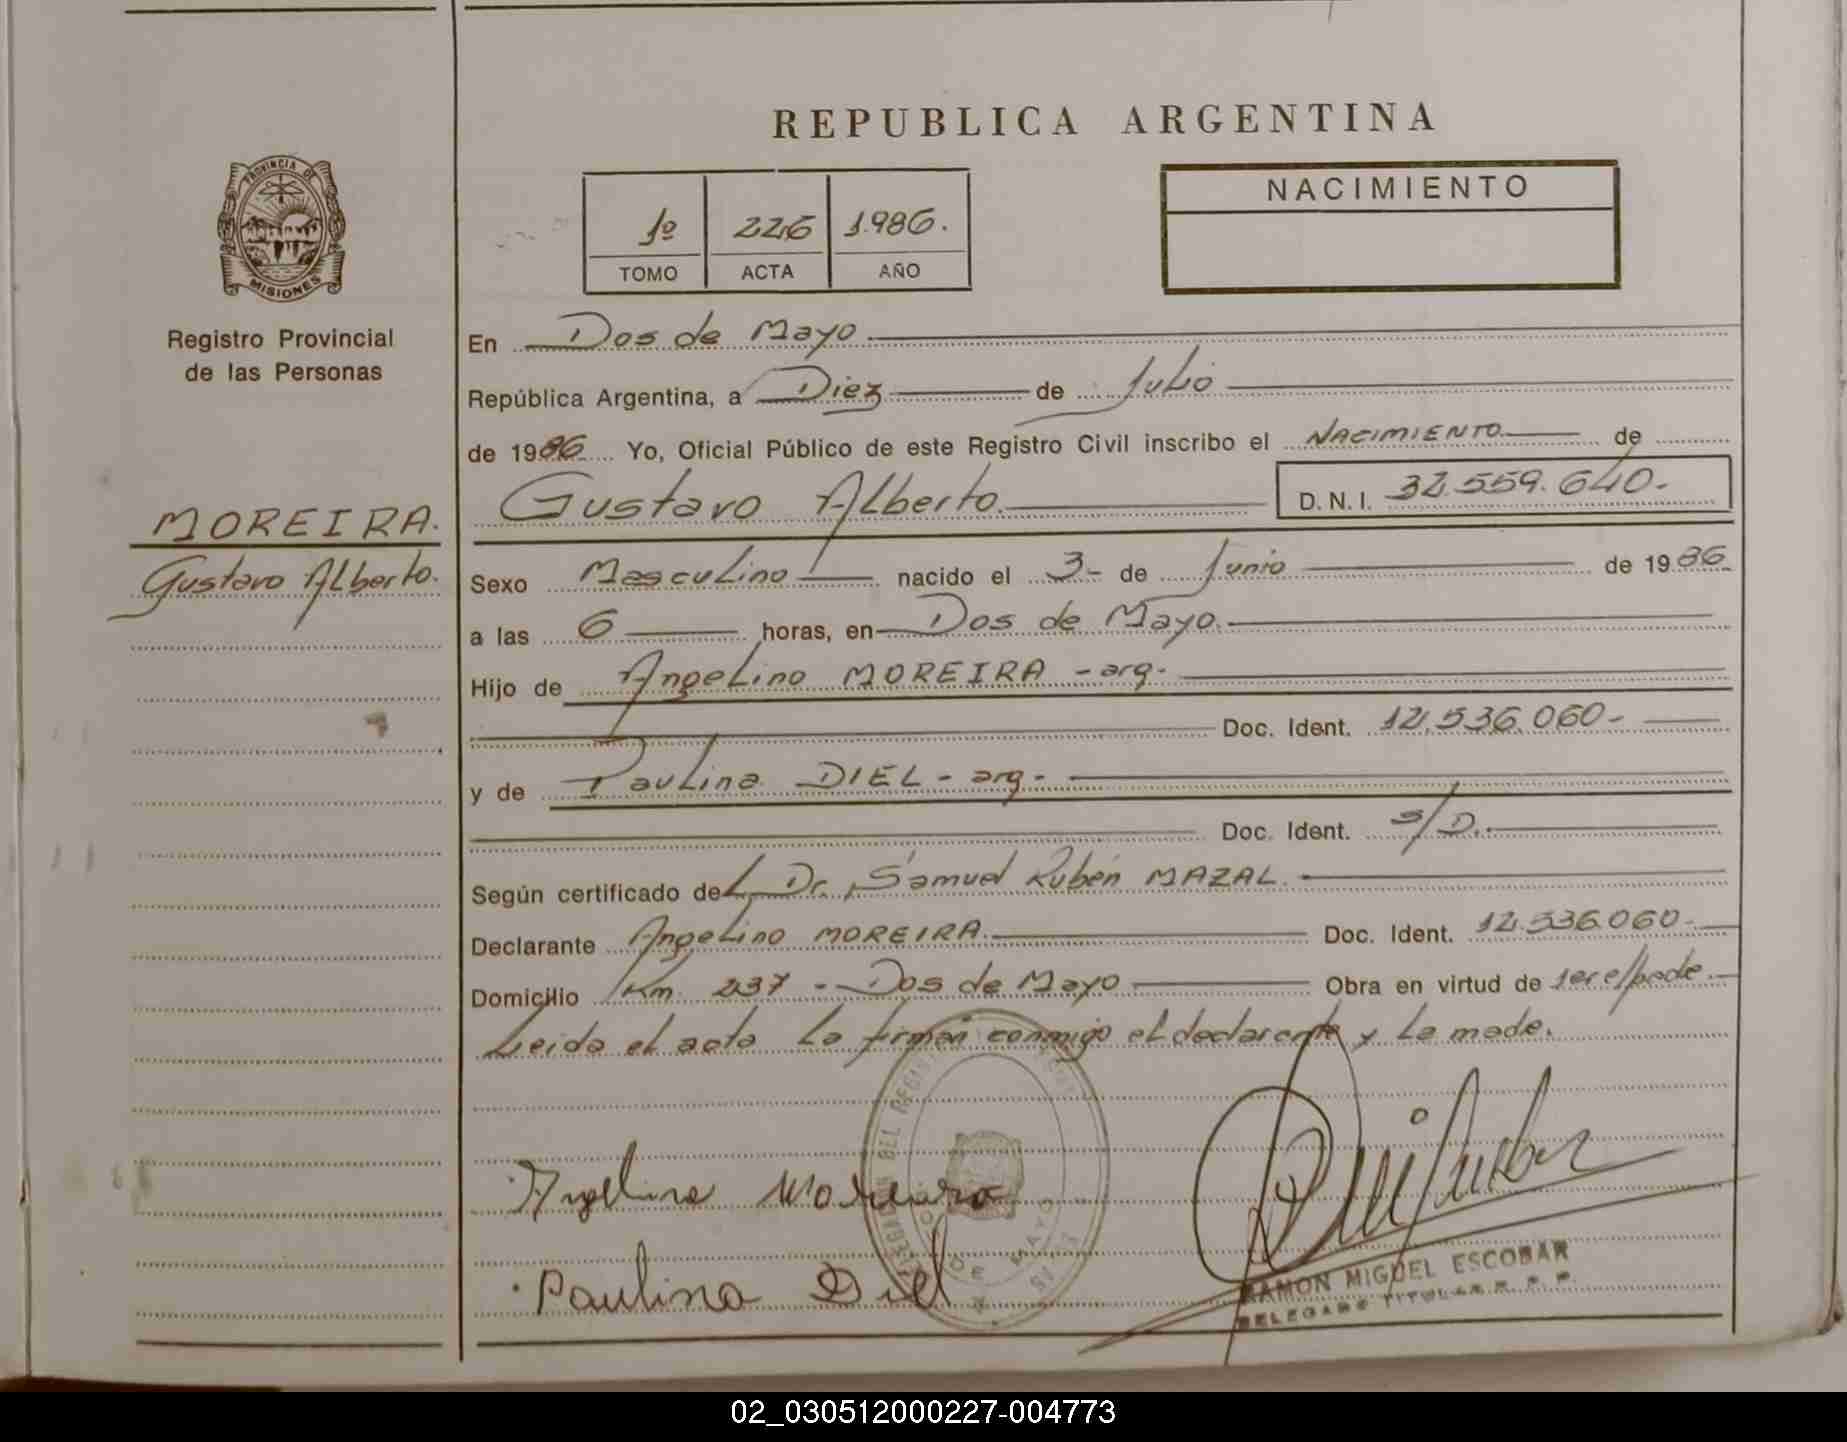 REPUBLICA ARGENTINA
PROVINCIA DE MISIONES
Registro Provincial
de las Personas
1º 226 1.986.
TOMO ACTA AÑO
NACIMIENTO
En Dos de Mayo.
República Argentina, a Diez de Julio
de 1986 Yo, Oficial Público de este Registro Civil inscribo el NACIMIENTO de
Gustavo Alberto. D.N.I. 32.559.640.-
MOREIRA.
Gustavo Alberto.
Sexo Masculino nacido el 3- de Junio de 1986
a las 6 horas, en Dos de Mayo.
Hijo de Angelino MOREIRA - arg.
Doc. Ident. 12.536.060-
y de Paulina DIEL - arg -
Doc. Ident. S/D.
Según certificado del Dr. Samuel Rubén MAZAL.
Declarante Angelino MOREIRA. Doc. Ident. 12.536.060-
Domicilio Km. 237 - Dos de Mayo Obra en virtud de ser el pade.
Leida el acta la firman conmigo el declarante y la made.
Angelino Moreira
Paulina Diel
DOS DE MAYO
RAMON MIGUEL ESCOBAR
DELEGADO TITULAR R. P. P.
02_030512000227-004773